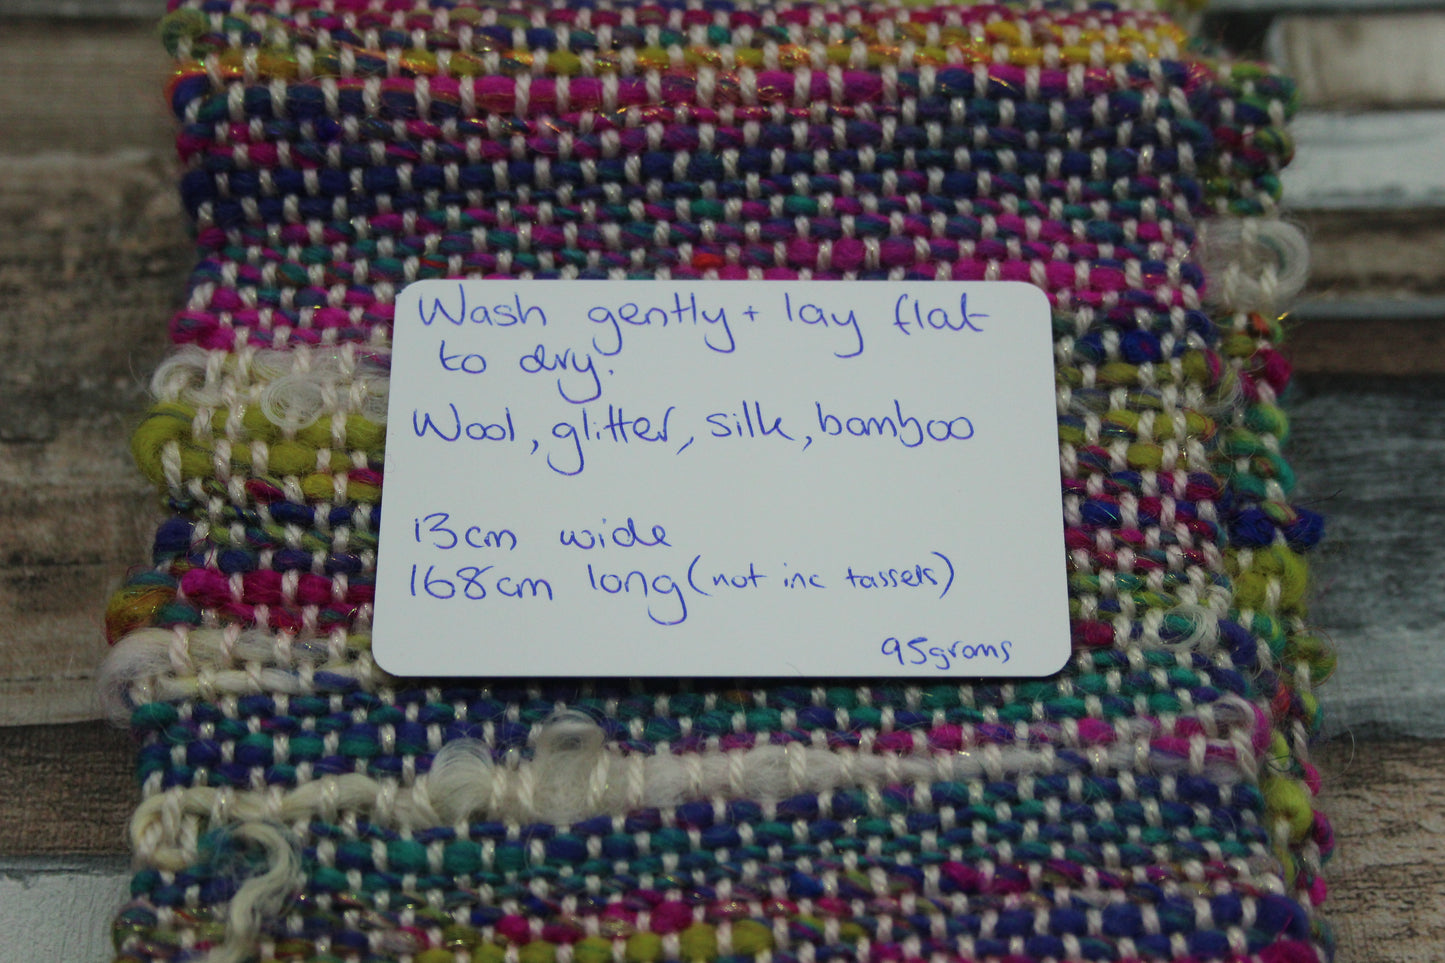 Wash gently + lay flat
to dry.
Wool, glitter, silk, bamboo
13cm wide
168cm long (not inc tassels)
95grams